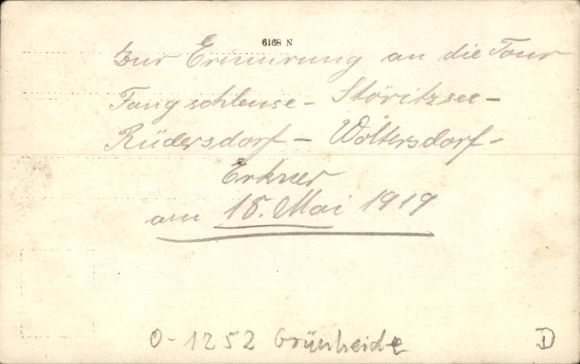 6168 N
Zur Erinnrung an die Tour
Fangschleuse - Störitzsee -
Rüdersdorf - Woltersdorf -
Erkner
am 18. Mai 1919
O-1252 Grünheide D